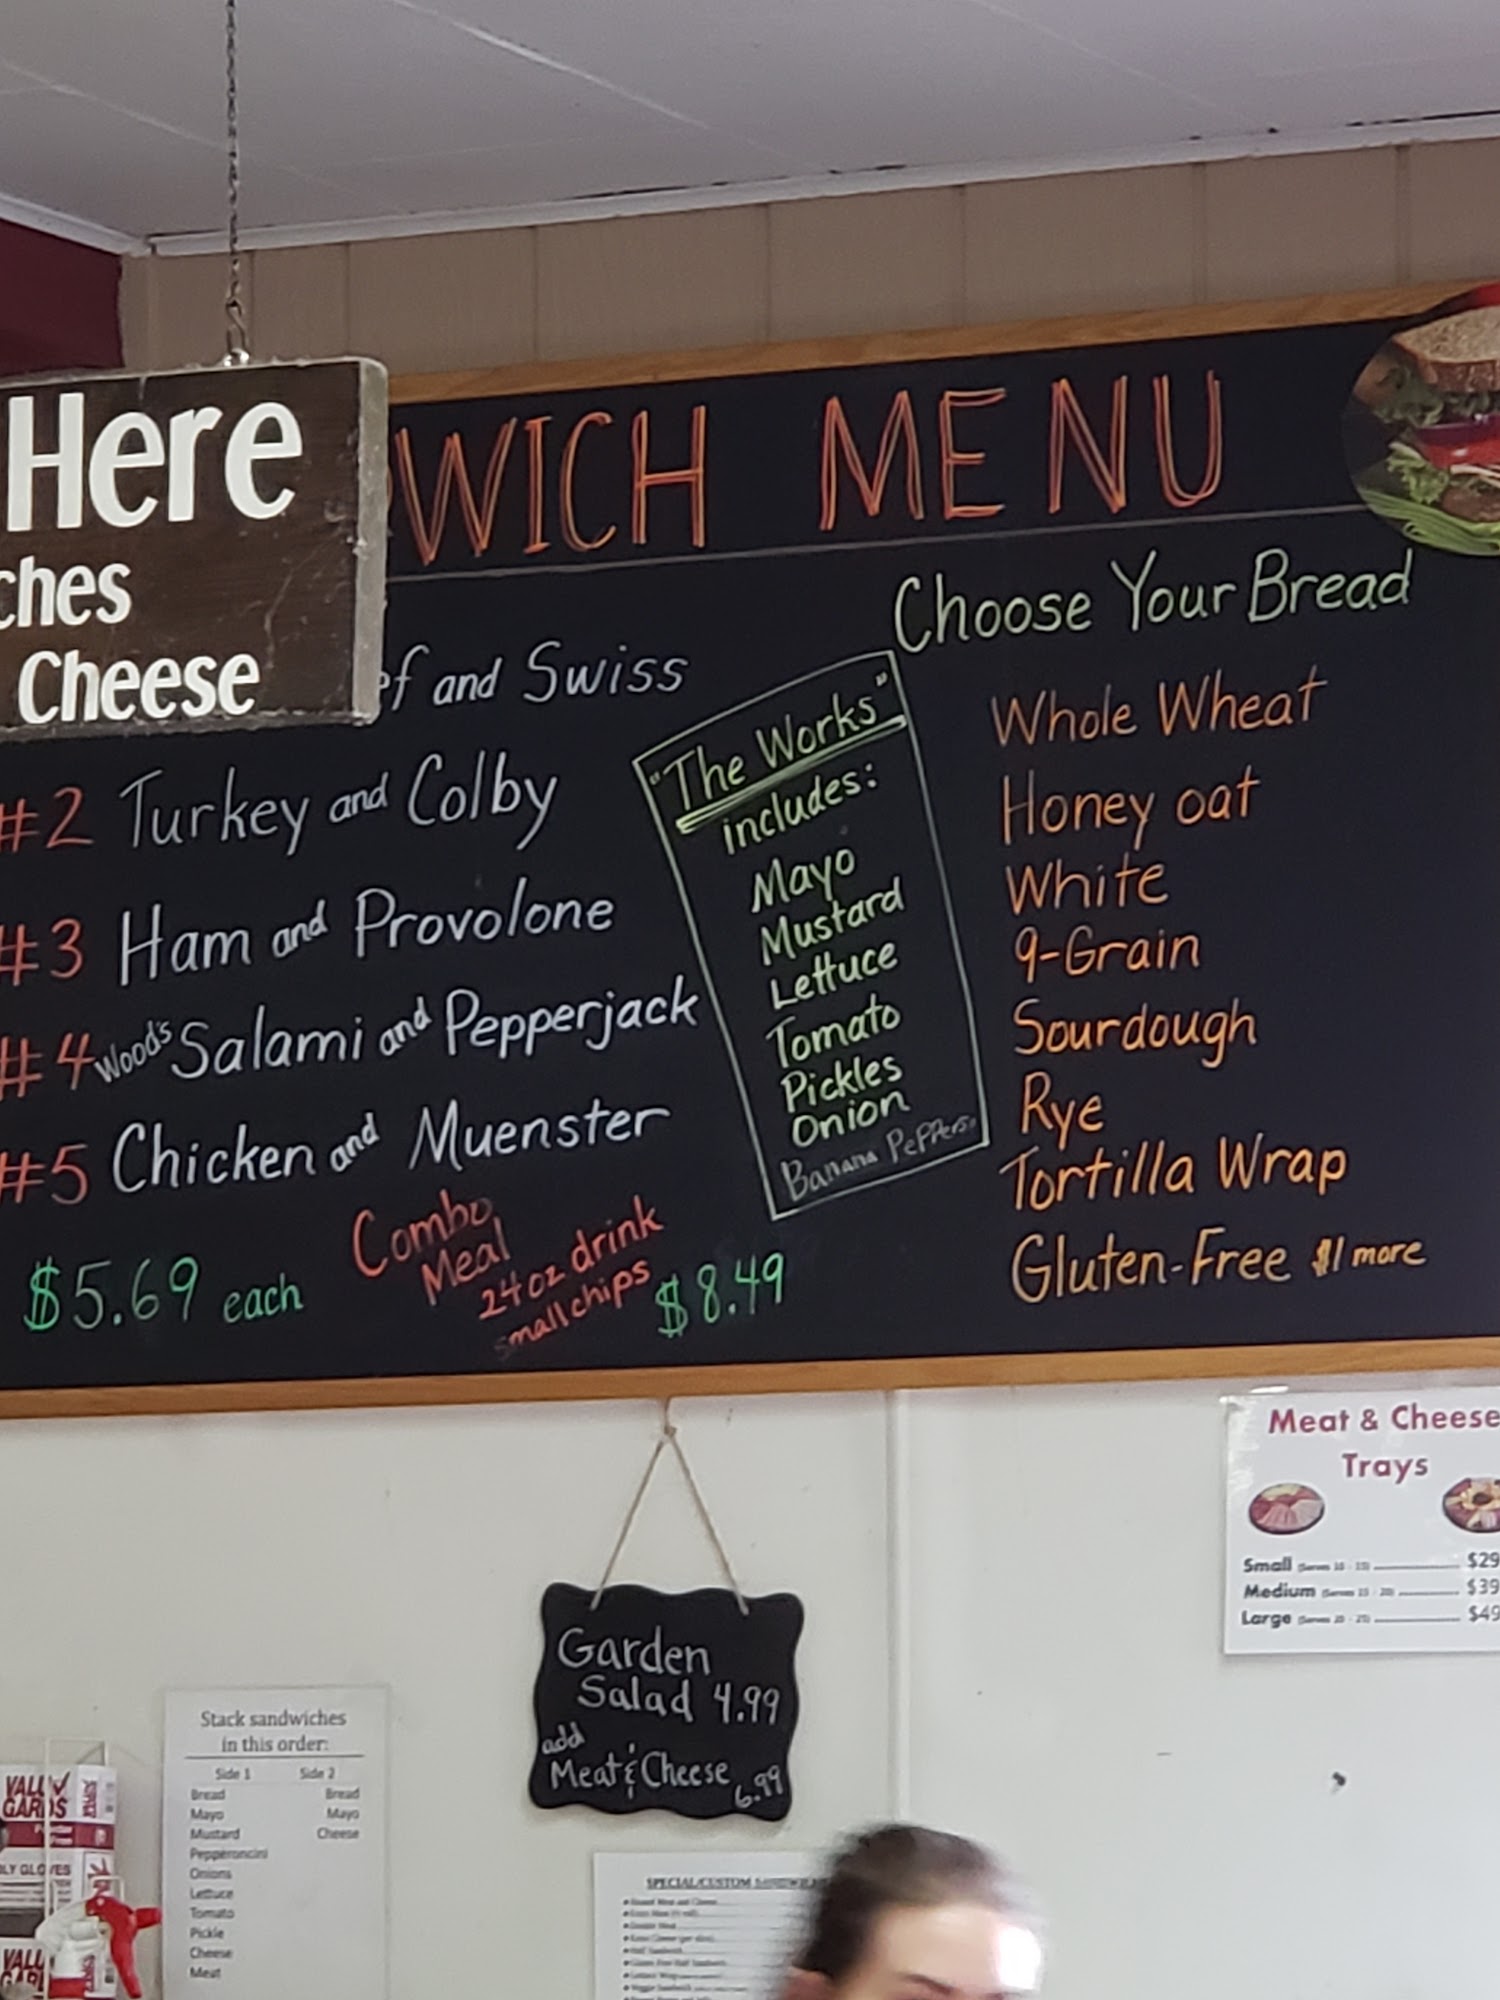 Here
ches
Cheese
WICH MENU
ef and Swiss
#2 Turkey and Colby
#3 Ham and Provolone
#4 Wood's Salami and Pepperjack
#5 Chicken and Muenster
$5.69 each
Combo
Meal
24 oz drink
small chips
$8.49
"The Works"
includes:
Mayo
Mustard
Lettuce
Tomato
Pickles
Onion
Banana Peppers
Choose Your Bread
Whole Wheat
Honey oat
White
9-Grain
Sourdough
Rye
Tortilla Wrap
Gluten-Free $1 more
Meat & Cheese
Trays
Small (Serves 10 - 15) $29
Medium (Serves 15 - 20) $39
Large (Serves 20 - 25) $49
Garden
Salad 4.99
add
Meat & Cheese
6.99
Stack sandwiches
in this order:
Side 1 Side 2
Bread Bread
Mayo Mayo
Mustard Cheese
Pepperoncini
Onions
Lettuce
Tomato
Pickle
Cheese
Meat
GLOVES
SPECIAL/CUSTOM